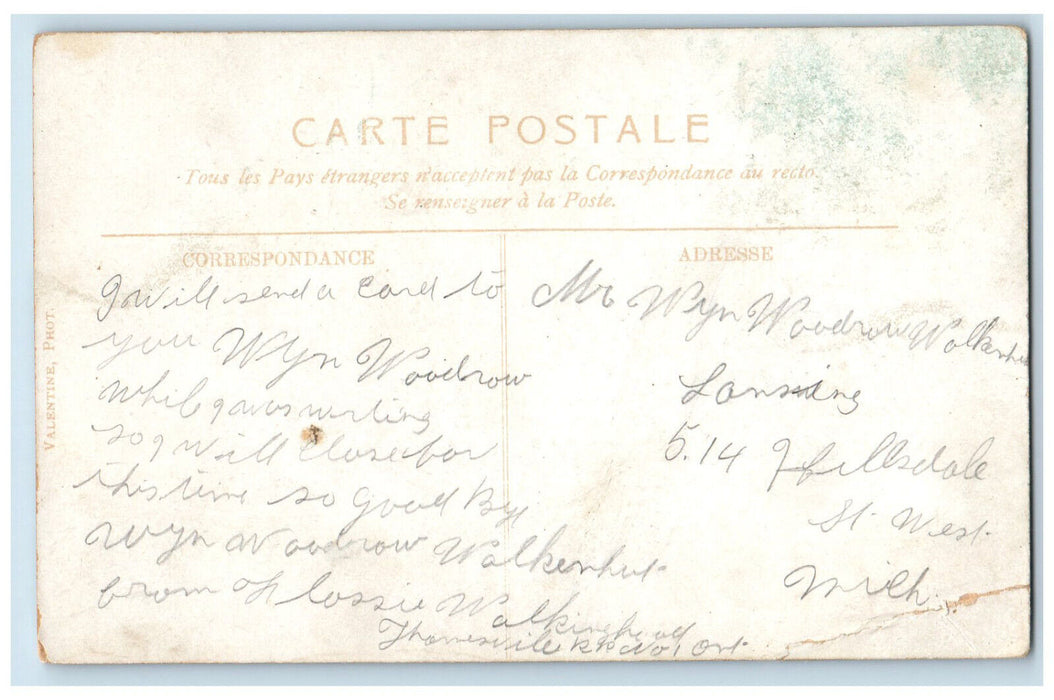 CARTE POSTALE
Tous les Pays étrangers n'acceptent pas la Correspondance au recto.
Se renseigner à la Poste.
CORRESPONDANCE
I will send a card to
you Wyn Woodrow
while I was writing
so I will close for
this time so Good By
Wyn Woodrow Walkenhut
from Flossie Walkinghood
Thamesville RR No 1 Ont.
ADRESSE
Mr Wyn Woodrow Walkenhut
Lansing
514 Hillsdale
St. West.
Mich.
VALENTINE, PHOT.